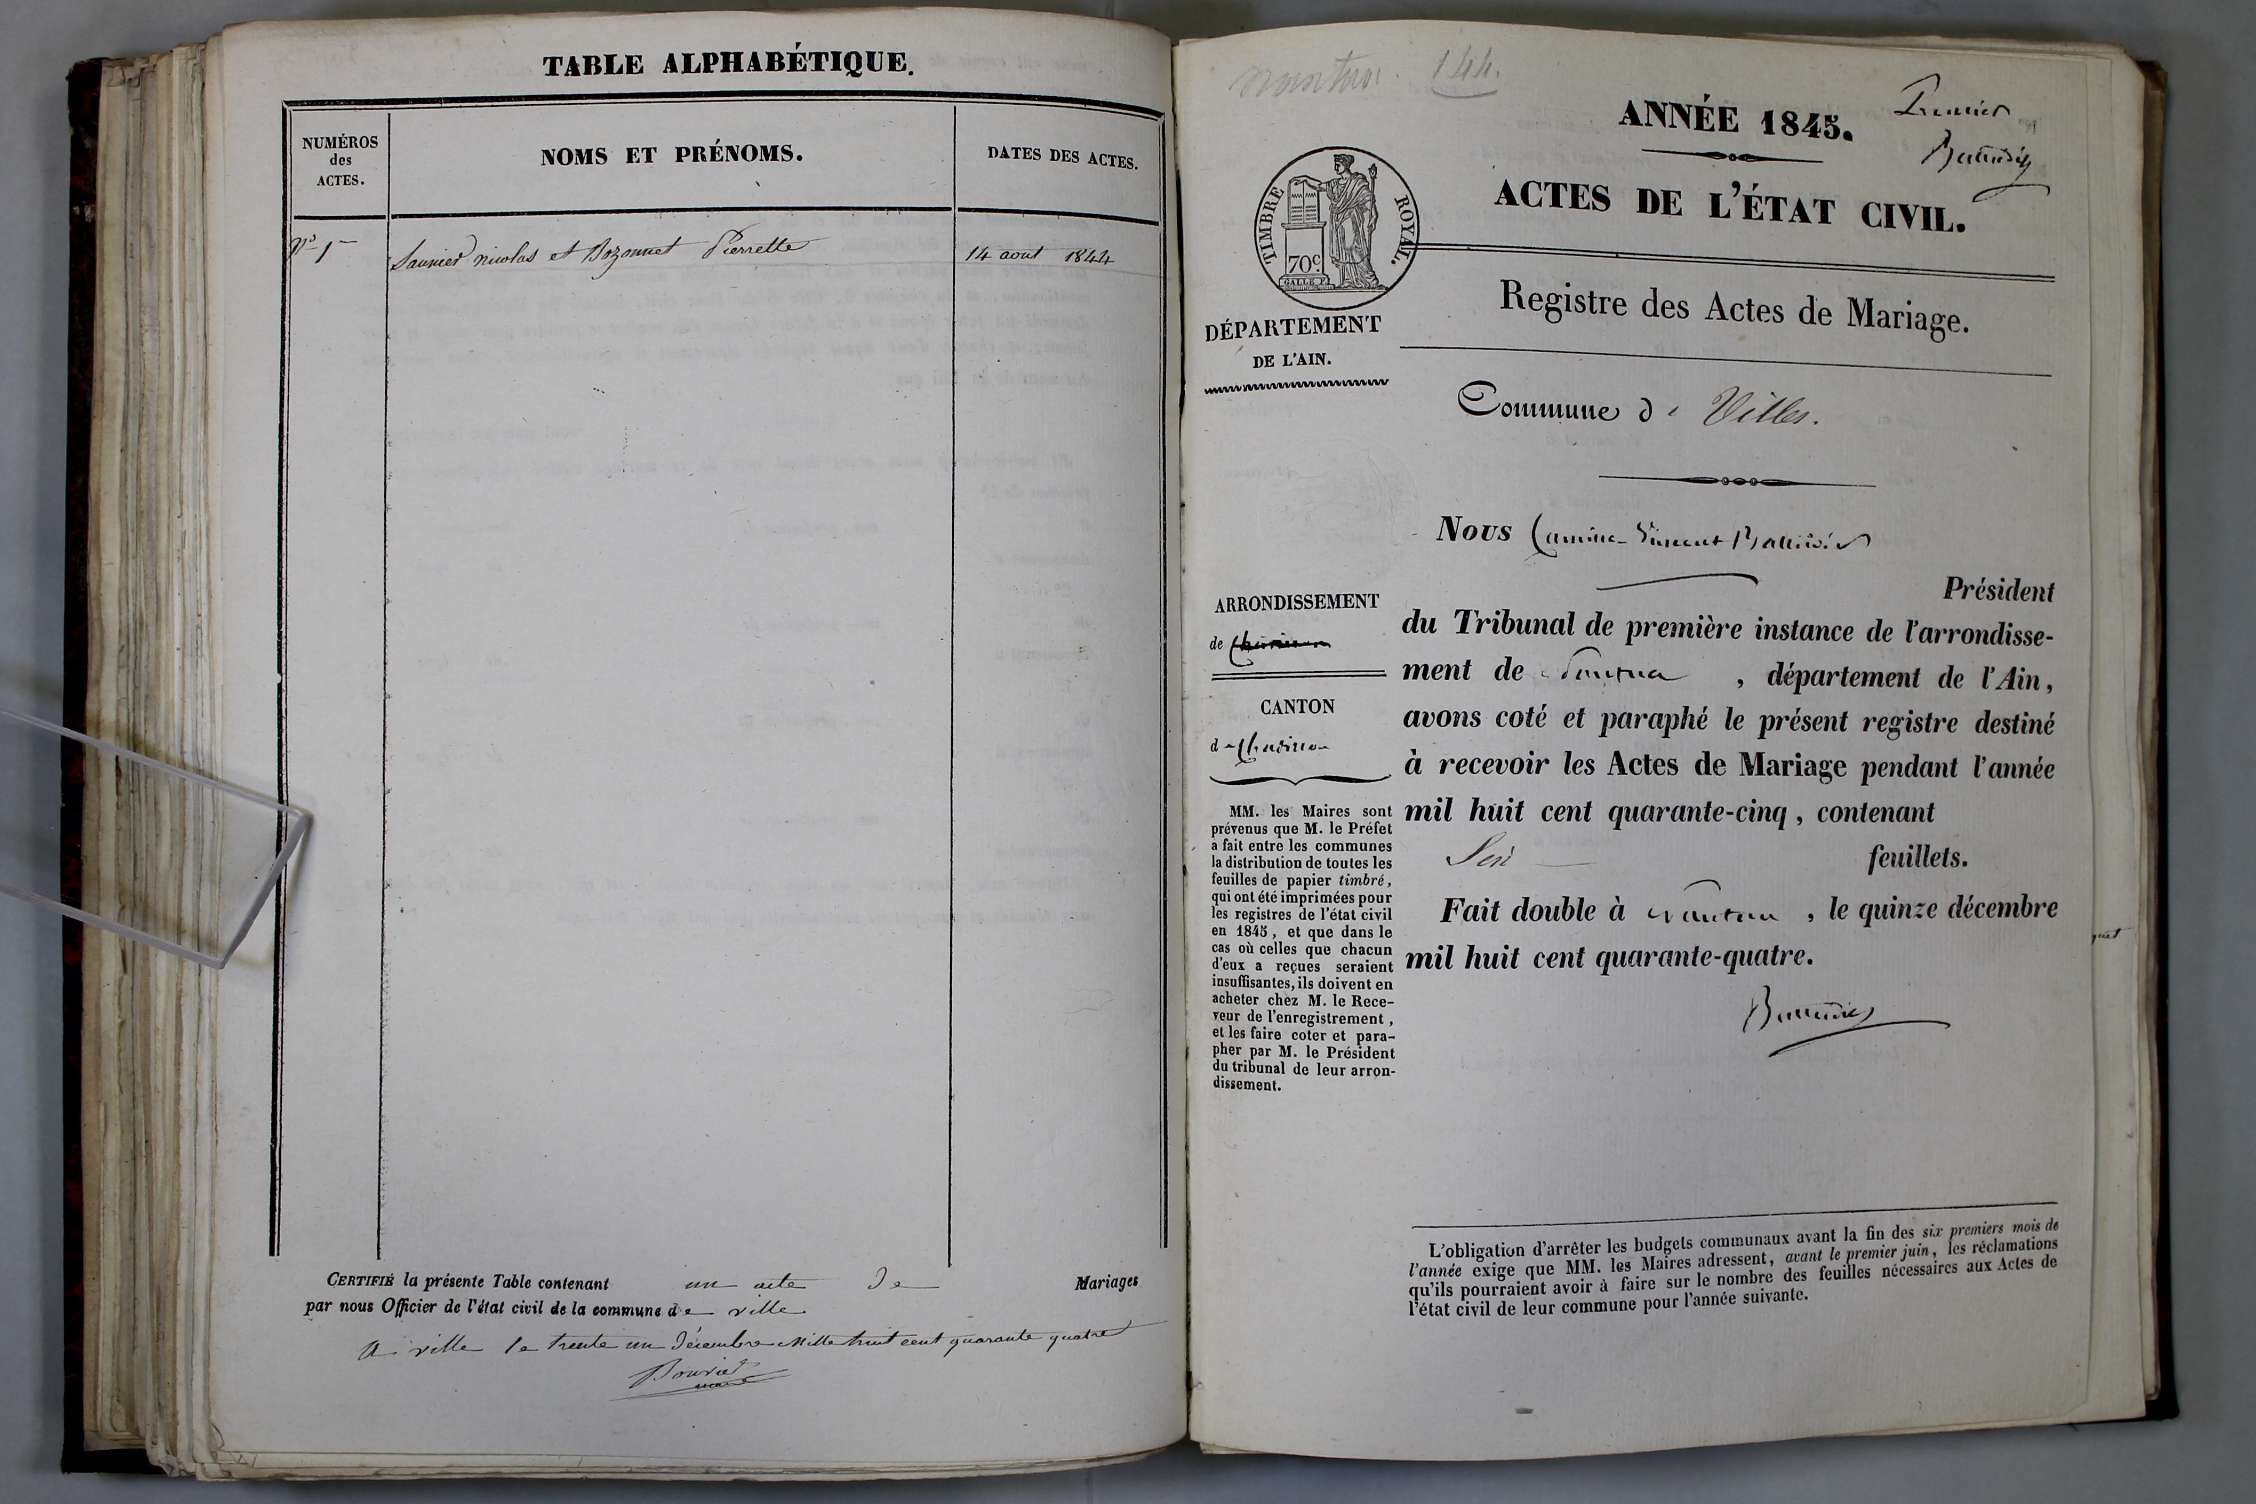 TABLE ALPHABÉTIQUE.
NUMÉROS
des
ACTES.
NOMS ET PRÉNOMS.
DATES DES ACTES.
N° 1
Saunier nicolas et Bozonnet Pierrette
14 aout 1844
CERTIFIÉ la présente Table contenant un acte de Mariages
par nous Officier de l'état civil de la commune de ville
A ville le trente un Décembre Mille huit cent quarante quatre
Bouvier
maire
144.
ANNÉE 1845.
Premier
ACTES DE L'ÉTAT CIVIL.
TIMBRE ROYAL.
70c.
DÉPARTEMENT
DE L'AIN.
Registre des Actes de Mariage.
Commune de Villes.
Nous
Président
ARRONDISSEMENT
de
du Tribunal de première instance de l'arrondisse-
ment de Nantua , département de l'Ain,
CANTON
avons coté et paraphé le présent registre destiné
à recevoir les Actes de Mariage pendant l'année
mil huit cent quarante-cinq , contenant
feuillets.
Fait double à Nantua , le quinze décembre
mil huit cent quarante-quatre.
MM. les Maires sont
prévenus que M. le Préfet
a fait entre les communes
la distribution de toutes les
feuilles de papier timbré,
qui ont été imprimées pour
les registres de l'état civil
en 1845, et que dans le
cas où celles que chacun
d'eux a reçues seraient
insuffisantes, ils doivent en
acheter chez M. le Rece-
veur de l'enregistrement,
et les faire coter et para-
pher par M. le Président
du tribunal de leur arron-
dissement.
L'obligation d'arrêter les budgets communaux avant la fin des six premiers mois de
l'année exige que MM. les Maires adressent, avant le premier juin, les réclamations
qu'ils pourraient avoir à faire sur le nombre des feuilles nécessaires aux Actes de
l'état civil de leur commune pour l'année suivante.